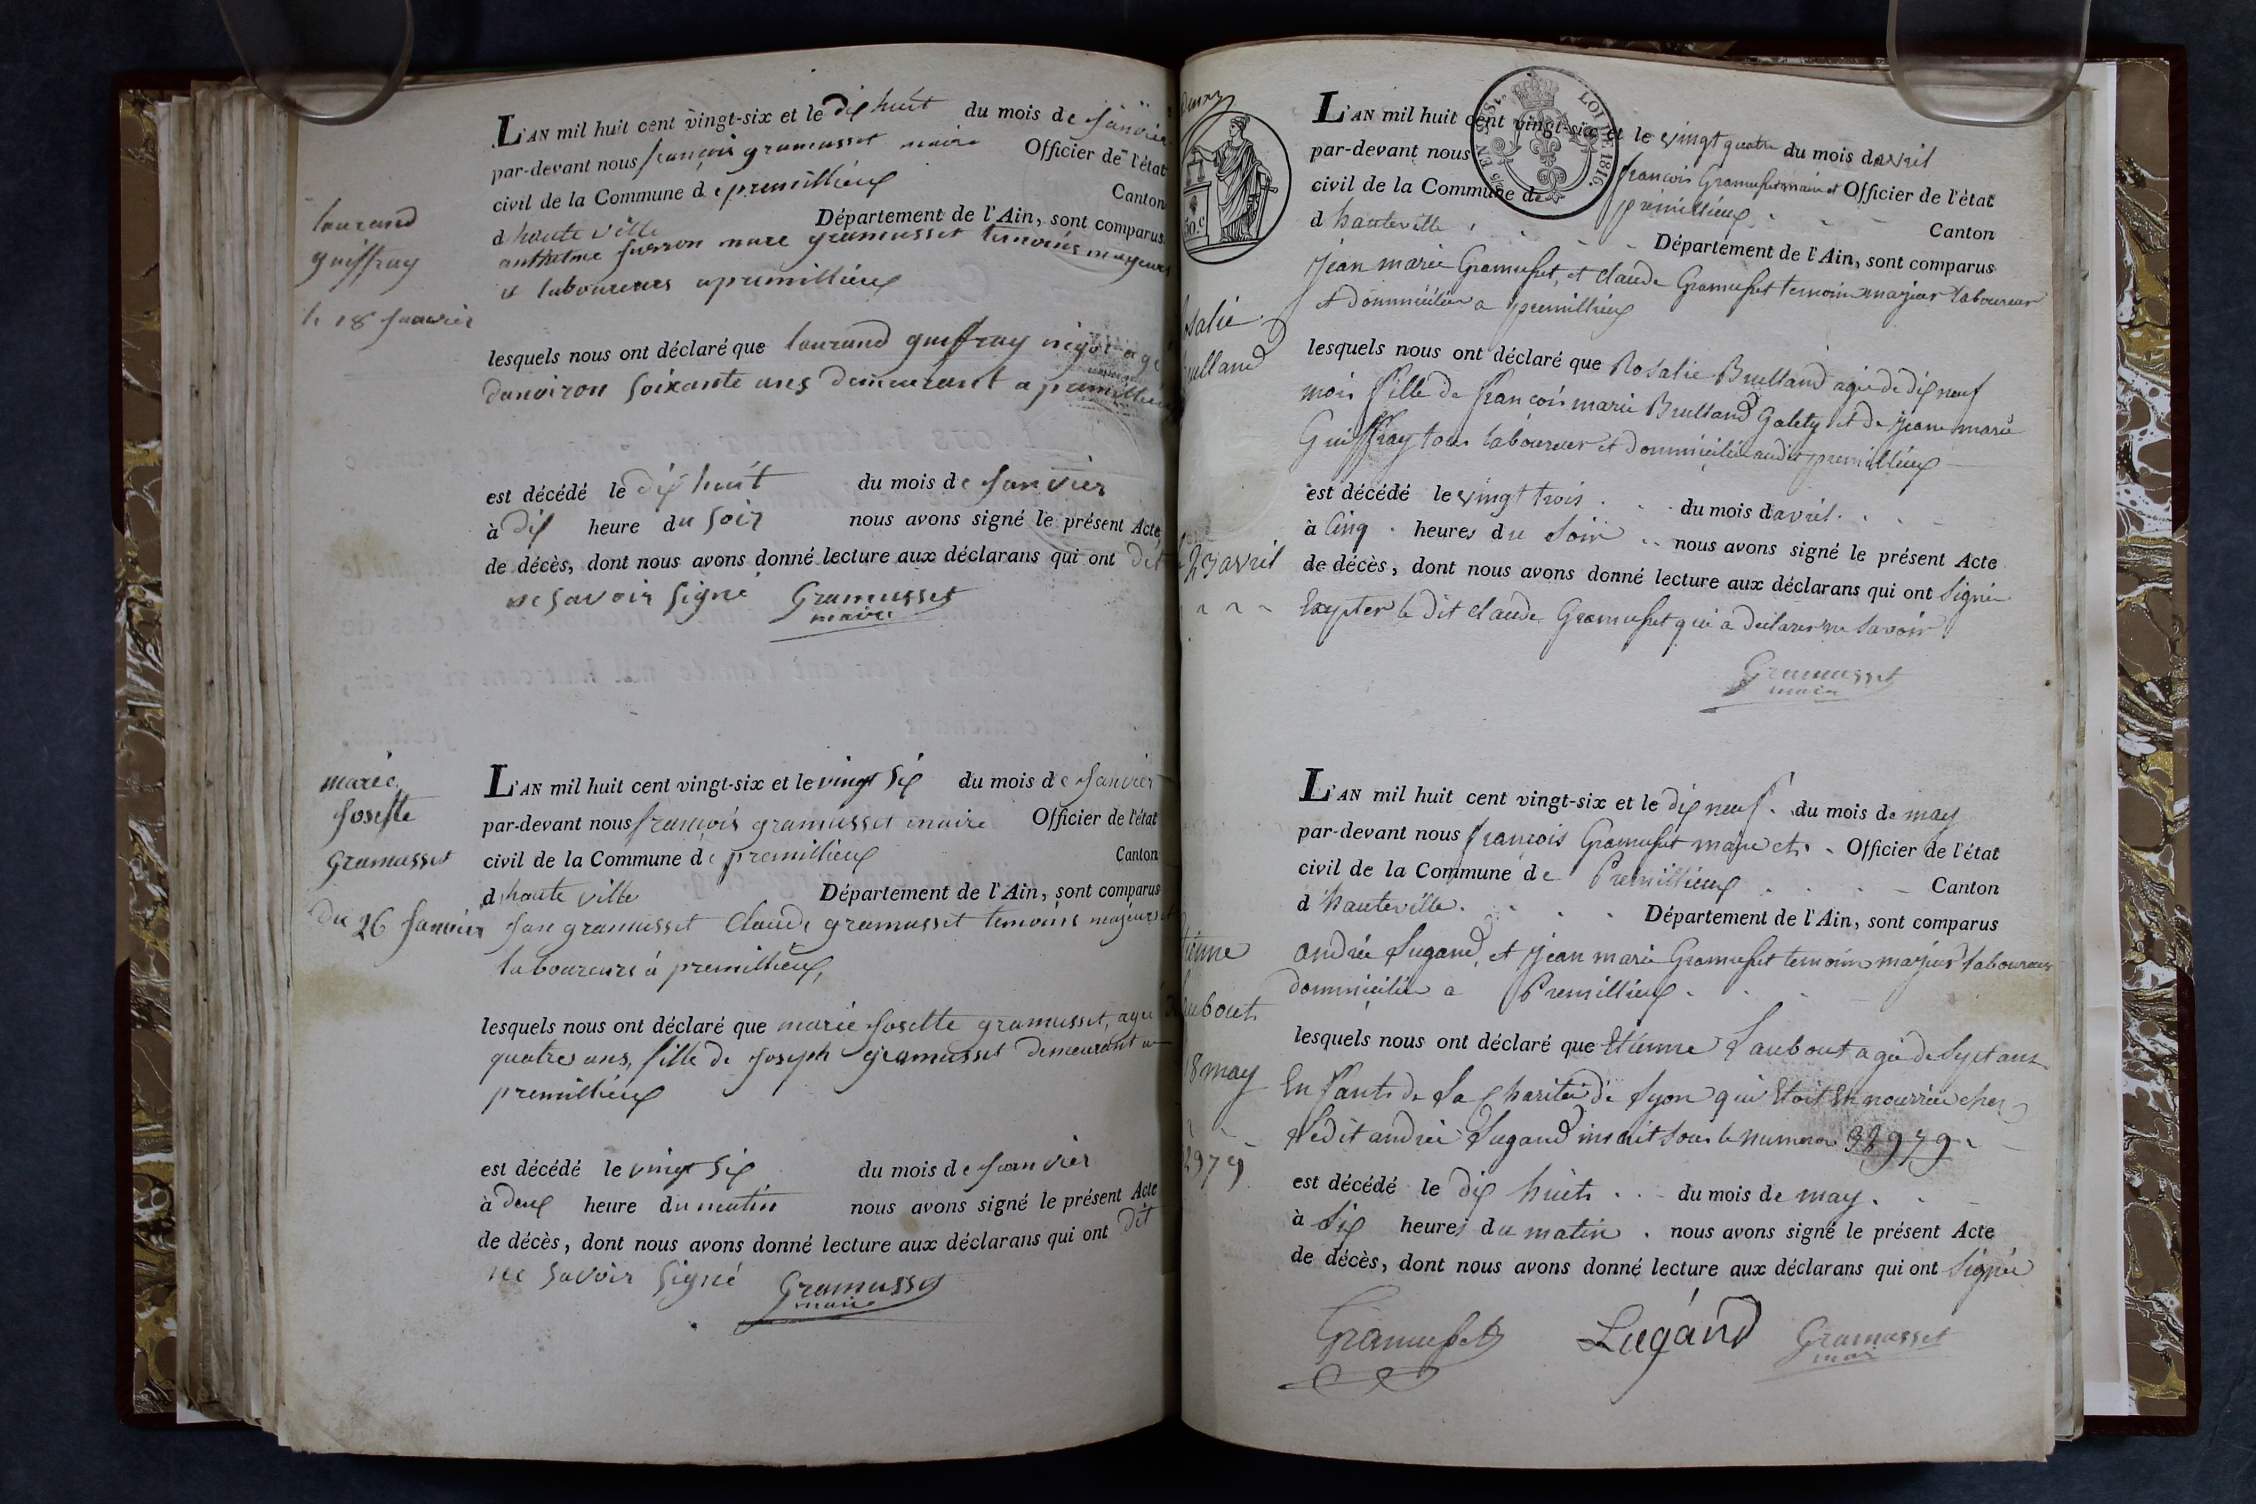 laurand
guiffray
le 18 Janvier
L'AN mil huit cent vingt-six et le dix huit du mois de Janvier
par-devant nous françois gramusset maire Officier de l'état
civil de la Commune de premillieux Canton
d haute ville Département de l'Ain, sont comparus
anthelme marc gramusset temoins majeurs
et laboureurs a premillieux
lesquels nous ont déclaré que laurand guiffray
danviron soixante ans demeurant a premillieux
est décédé le dix huit du mois de Janvier
à dix heure du soir nous avons signé le présent Acte
de décès, dont nous avons donné lecture aux déclarans qui ont dit
ne savoir signé Gramusset
maire
marie
Josette
Gramusset
du 26 Janvier
L'AN mil huit cent vingt-six et le vingt six du mois de Janvier
par-devant nous francois gramusset maire Officier de l'état
civil de la Commune de premillieux Canton
d haute ville Département de l'Ain, sont comparus
Jan gramusset Claude gramusset temoins majeurs et
laboureurs à premillieux,
lesquels nous ont déclaré que marie Josette gramusset, agé
quatres ans, fille de Joseph gramusset demeurant a
premillieux
est décédé le vingt six du mois de Janvier
à deux heure du matin nous avons signé le présent Acte
de décès, dont nous avons donné lecture aux déclarans qui ont dit
ne savoir signé Gramusset
maire
50.c
LOI DE 1816.
osalie
ulland
23 avril
L'AN mil huit cent vingt-six et le vingt quatre du mois davril
par-devant nous francois Gramusset maire et Officier de l'état
civil de la Commune de premillieux Canton
d hauteville Département de l'Ain, sont comparus
Jean marie Gramusset, et claude Gramusset temoins majeur laboureur
et dommicilier a premillieux
lesquels nous ont déclaré que Rosalie Brulland agée de dix neuf
mois fille de françois marie Brulland Galety et de Jeane marie
Guiffray tous laboureur et dommicilié audit premillieux
est décédé le vingt trois du mois davril.
à Cinq heures du Soir nous avons signé le présent Acte
de décès, dont nous avons donné lecture aux déclarans qui ont Signée
Exypter le dit claude Gramusset qui a declarer ne Savoir
Gramusset
maire
tienne
aubout
18 may
2979
L'AN mil huit cent vingt-six et le dix neuf. du mois de may
par-devant nous françois Gramusset maire et Officier de l'état
civil de la Commune de Premillieux Canton
d hauteville. Département de l'Ain, sont comparus
andrée Lugand, et Jean marie Gramusset temoins majeur laboureur
dommicilier a Premillieux.
lesquels nous ont déclaré que Etienne Laubout agée de Sept ans
En fants de La Charitée de Lyon qui Etoit En nourrice chez
Ledit andrée Lugand inscrit sous le numero 32979
est décédé le dix huits du mois de may.
à Six heures du matin. nous avons signé le présent Acte
de décès, dont nous avons donné lecture aux déclarans qui ont Signée
Gramusset Lugand Gramusset
maire